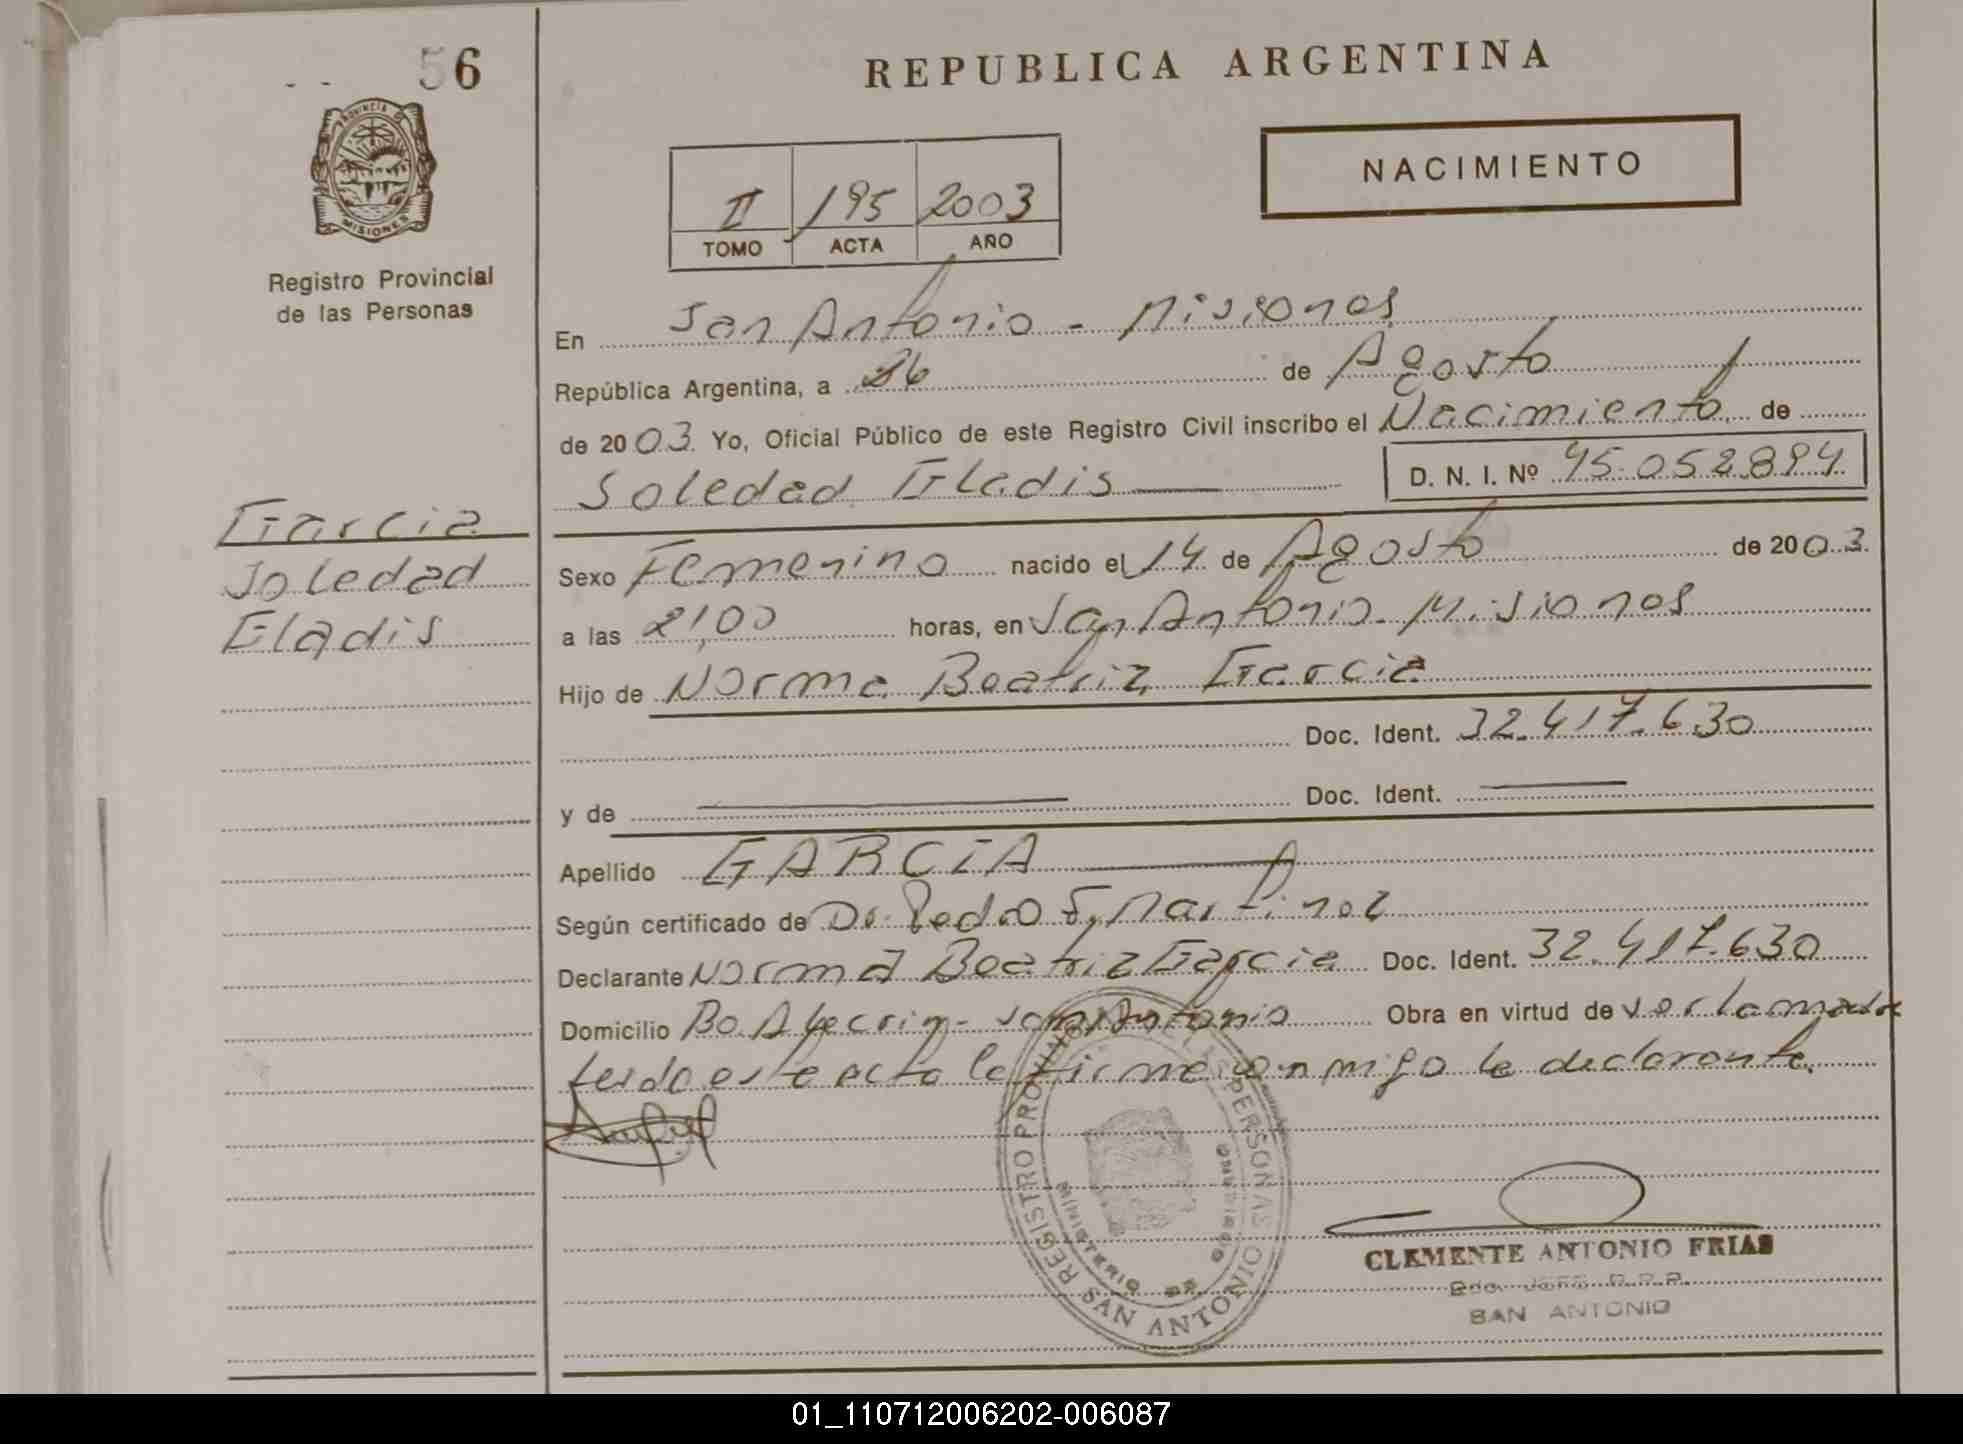 56
REPUBLICA ARGENTINA
NACIMIENTO
II 195 2003
TOMO ACTA AÑO
PROVINCIA DE
MISIONES
Registro Provincial
de las Personas
En San Antonio - Misiones
República Argentina, a 26 de Agosto
de 2003. Yo, Oficial Público de este Registro Civil inscribo el Nacimiento de
Soledad Gladis D. N. I. Nº 45.052.894
Garcia
Soledad
Gladis
Sexo Femenino nacido el 14 de Agosto de 2003
a las 21,00 horas, en San Antonio - Misiones
Hijo de Norma Beatriz Garcia
Doc. Ident. 32.417.630
y de Doc. Ident.
Apellido GARCIA
Según certificado de Dr. Pedro Martinez
Declarante Norma Beatriz Garcia Doc. Ident. 32.417.630
Domicilio Bo. San Antonio Obra en virtud de ser la madre
leida este acta la firma conmigo la declarante.
REGISTRO PROVINCIAL DE LAS PERSONAS
MINISTERIO DE GOBIERNO
SAN ANTONIO
CLEMENTE ANTONIO FRIAS
SAN ANTONIO
01_110712006202-006087